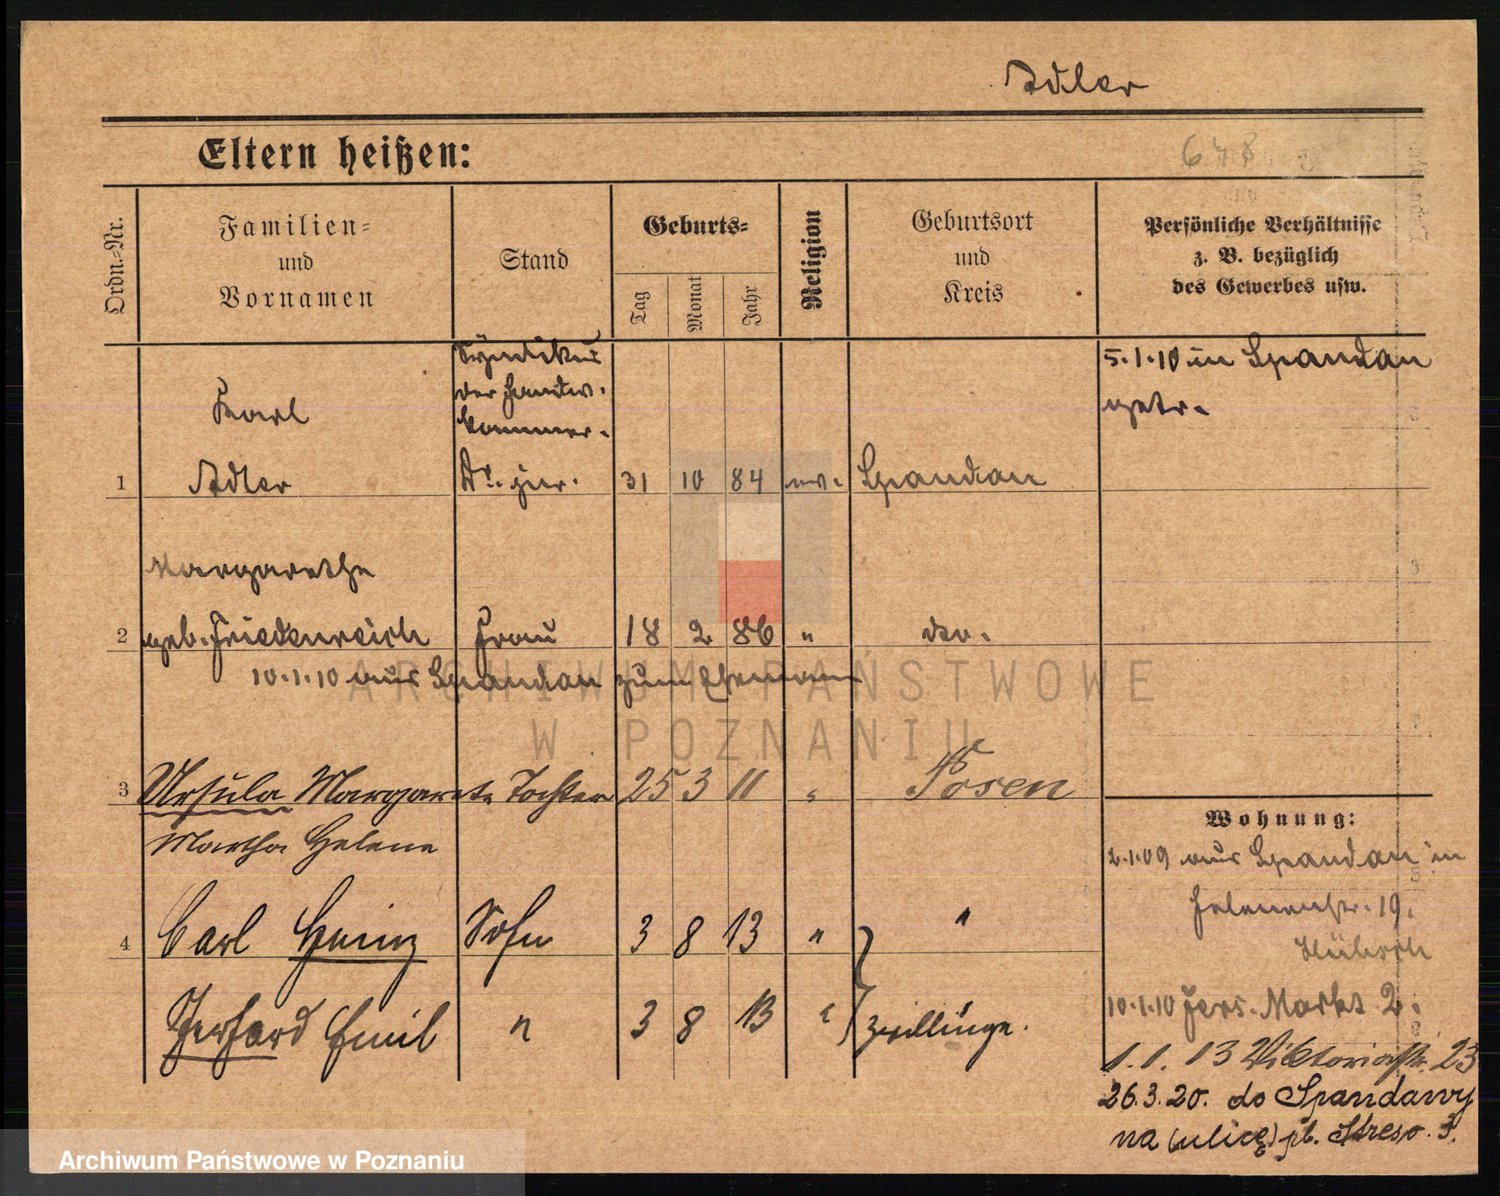 Adler
Eltern heißen:
678
Ordn.-Nr.
Familien-
und
Vornamen
Stand
Geburts-
Tag
Monat
Jahr
Religion
Geburtsort
und
Kreis
Persönliche Verhältnisse
z. B. bezüglich
des Gewerbes usw.
Karl
Syndikus
der Handw.
kammer.
5.1.10 in Spandau
getr.
1 Adler Dr. jur. 31 10 84 ev. Spandau
Margarethe
2 geb. Friedenreich Frau 18 2 86 " do.
10.1.10 aus Spandau zum Ehemann
3 Ursula Margarete Tochter 25 3 11 " Posen
Martha Helene
4 Carl Heinz Sohn 3 8 13 " "
Gerhard Emil " 3 8 13 " Zwillinge.
Wohnung:
2.1.09 aus Spandau in
Helenenstr. 19.
10.1.10 Jers. Markt 2.
1.1.13 Viktoriastr. 23
26.3.20. do Spandawy
na (ulicę) pl. Streso. 3.
ARCHIWUM PAŃSTWOWE
W POZNANIU
Archiwum Państwowe w Poznaniu